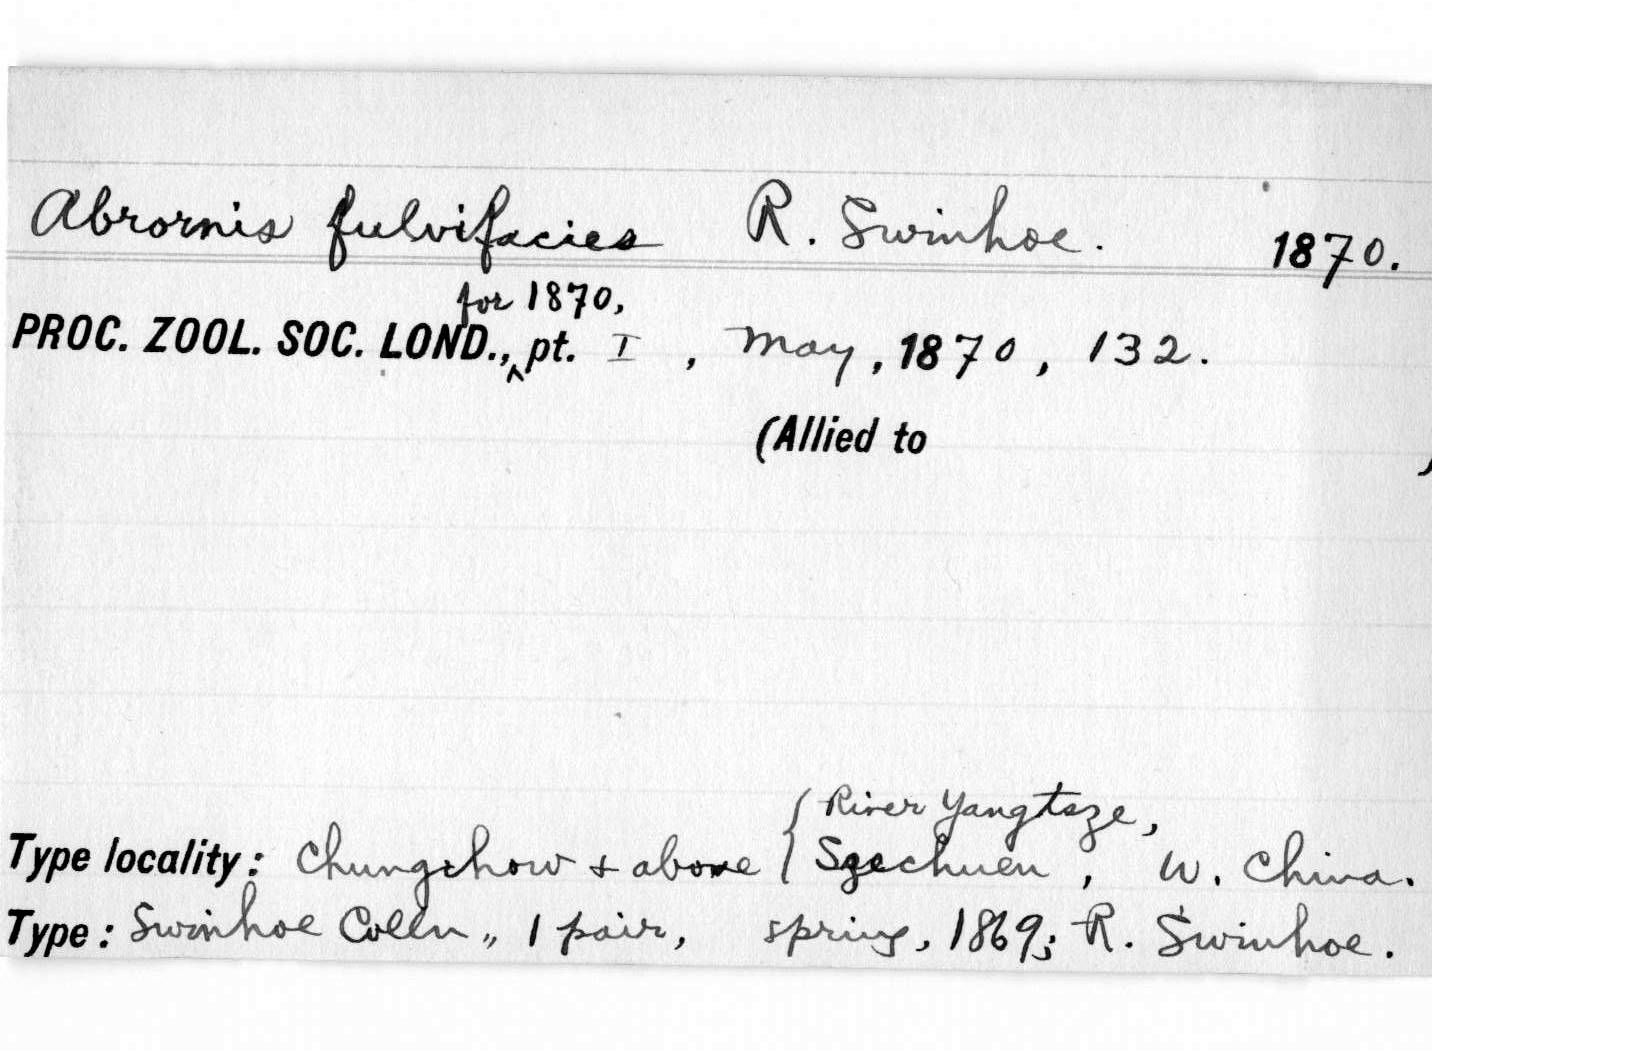 Abrornis fulvifacies R. Swinhoe. 1870.
for 1870,
PROC. ZOOL. SOC. LOND., ^ pt. I, May, 1870, 132.
(Allied to )
River Yangtsze,
Type locality: Chungchow + above { Szechuen, W. China.
Type: Swinhoe Colln., 1 pair, spring, 1869; R. Swinhoe.